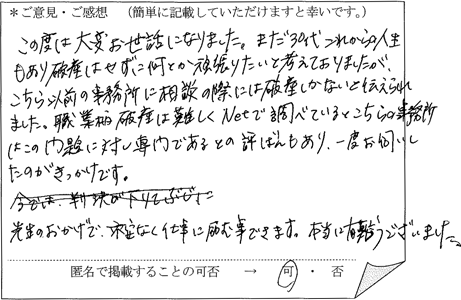 *ご意見・ご感想 (簡単に記載していただけますと幸いです。)
この度は大変お世話になりました。まだ30代これからの人生
もあり破産はせずに何とか頑張りたいと考えておりましたが、
こちら以前の事務所に相談の際には破産しかないと伝えられ
ました。職業柄破産は難しくNetで調べているとこちらの事務所
はこの問題に対し専門であるとの評ばんもあり、一度お伺いし
たのがきっかけです。
先生のおかげで、不安なく仕事に励む事できます。本当に有難うございました。
匿名で掲載することの可否 → 可 ・ 否